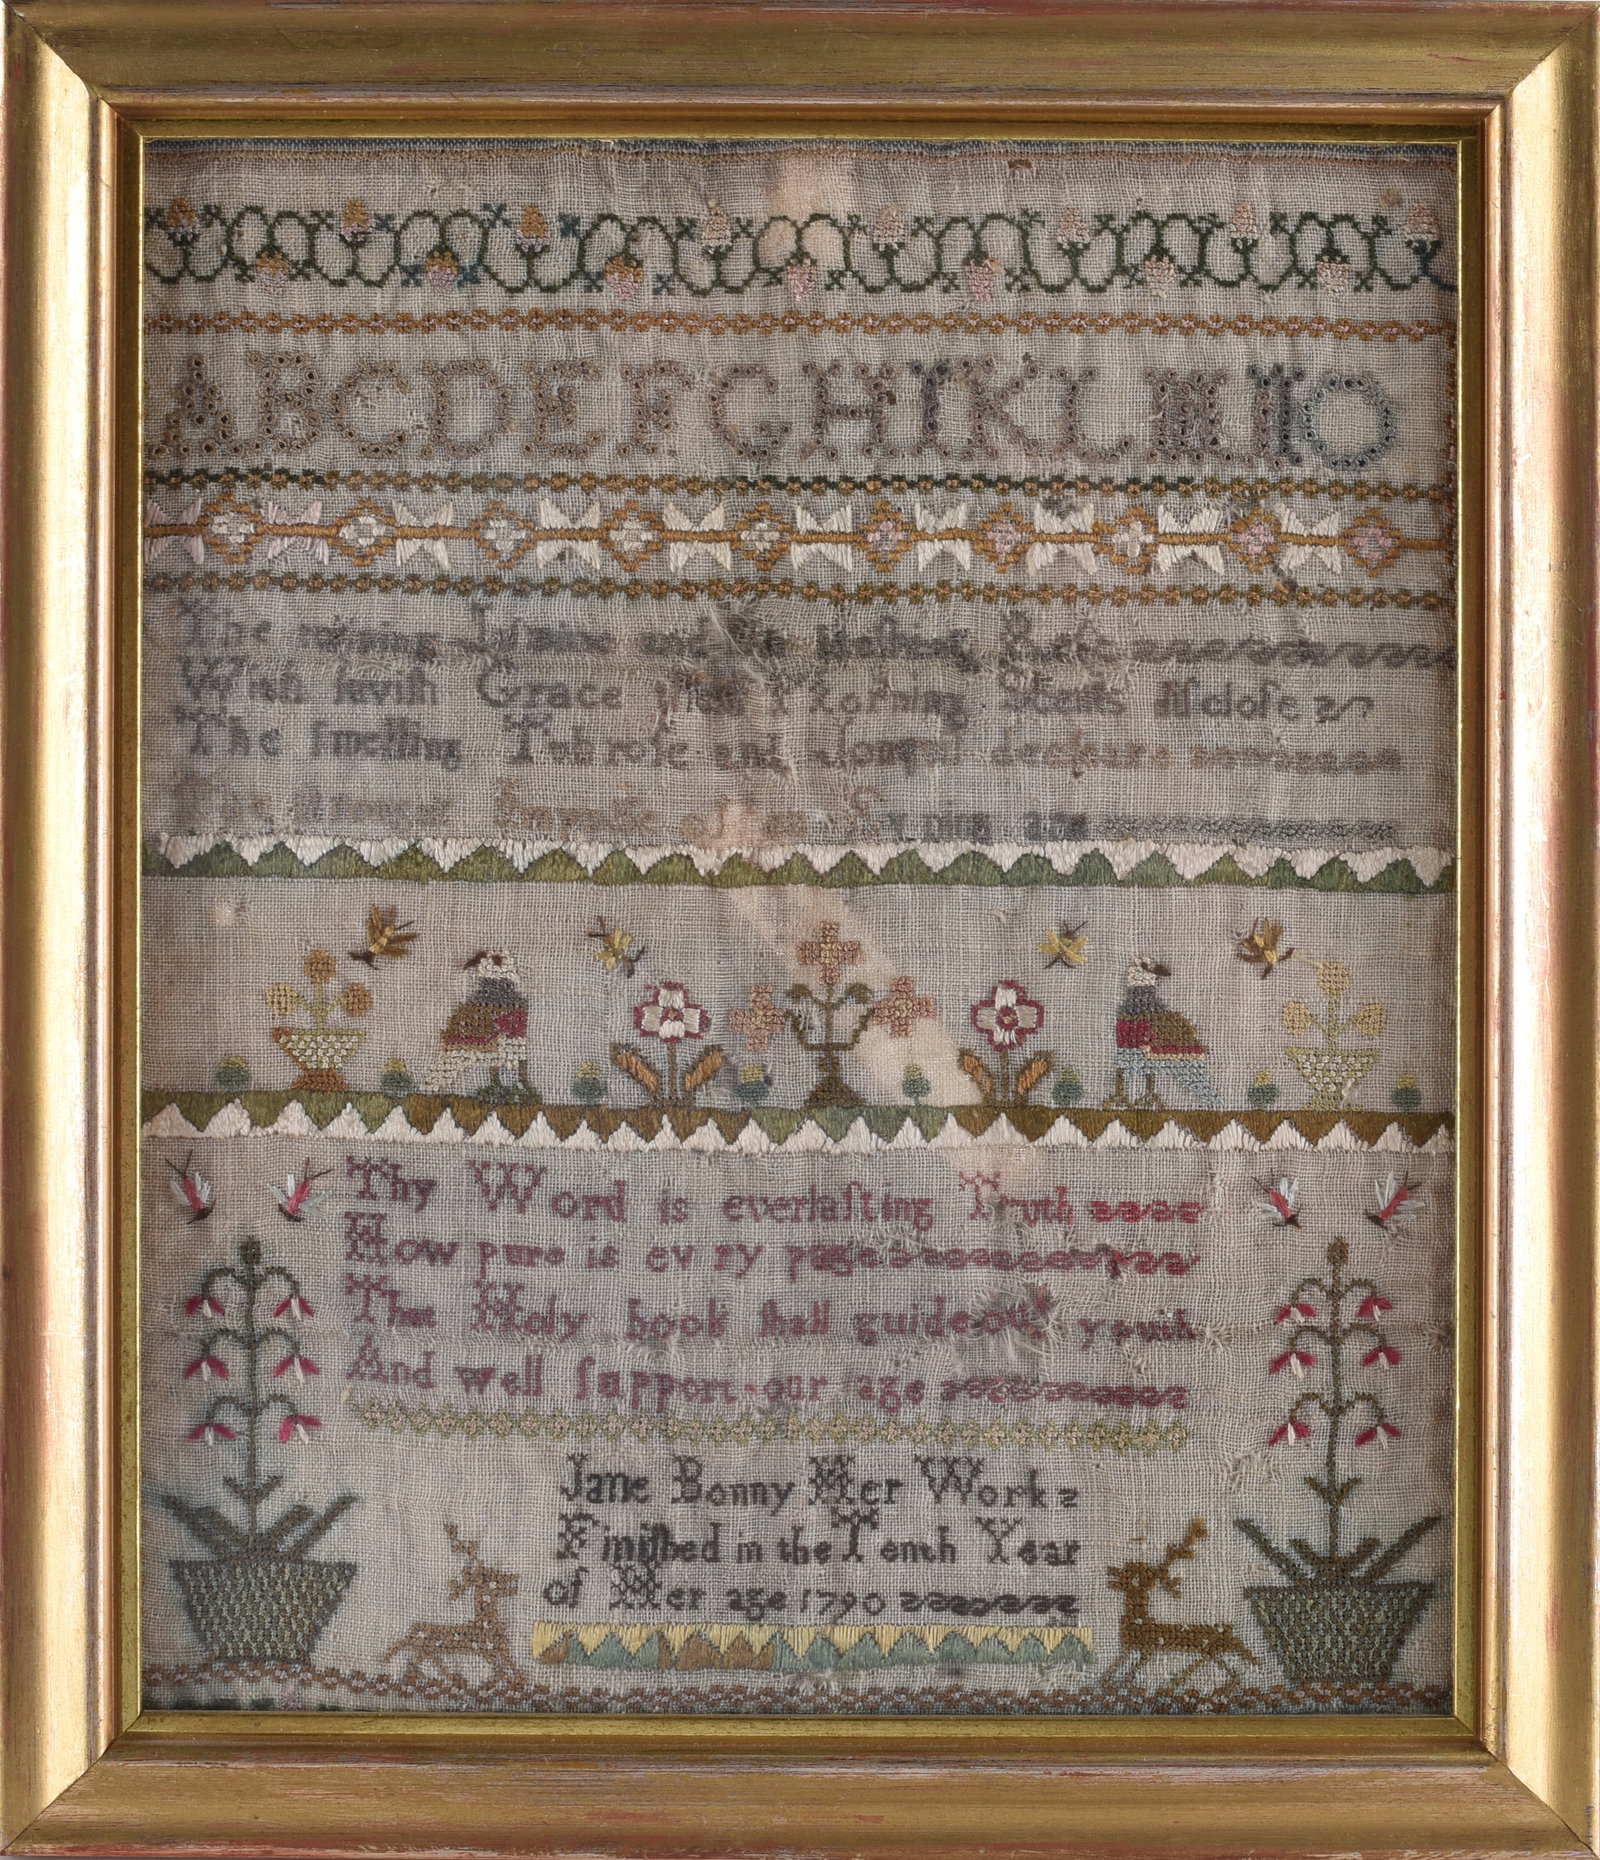 ABCDEFGHIKLMNO
The Jesamine and the Rose
With lavish Grace their Morning Scents disclose
The smelling Tubrose and Jonquil declare
The Stronger
Thy Word is everlaſting Truth
How pure is ev ry page
That Holy book ſhall guide our youth
And well ſupport our age
Jane Bonny Her Work
Finiſhed in the Tenth Year
of Her age 1790